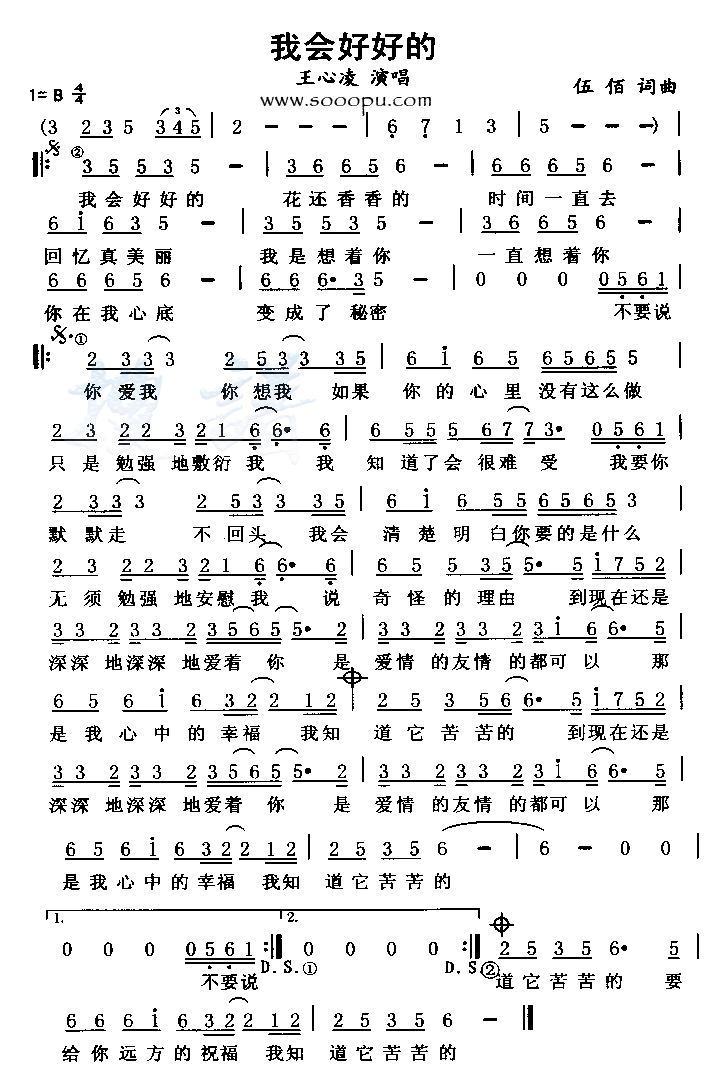 我会好好的
王心凌 演唱
1=B 4/4
www.sooopu.com
伍佰 词曲
(3 235 345 | 2 - - - | 6 7 1 3 | 5 - - -)
② 35535 - | 36656 - | 66656 - |
我会好好的 花还香香的 时间一直去
61635 - | 35535 - | 36656 - |
回忆真美丽 我是想着你 一直想着你
66656 - | 666·35 - | 0 0 0 0561 |
你在我心底 变成了秘密 不要说
① 2 333 3 2 533 3 35 | 6 1 6 5 65655 5 |
你爱我 你想我 如果 你的心里没有这么做
2 3 22 3 2321 6 6· 6 | 6 555 677 3· 0561 |
只是勉强地敷衍我 我 知道了会很难受 我要你
2 333 3 2 533 3 35 | 6 1 6 55 65655 3 |
默默走 不回头 我会 清楚明白你要的是什么
2 3 22 3 2 21 6 6· 6 | 6 5 5 355 5· 1752 |
无须勉强地安慰我 说 奇怪的理由 到现在还是
33 233 23565 5· 2 | 33 233 2331 6 6· 5 |
深深地深深地爱着你 是 爱情的友情的都可以 那
65 61 6322 12 | 25 356 6· 1752 |
是我心中的幸福 我知 道它苦苦的 到现在还是
33 233 23565 5· 2 | 33 233 2331 6 6· 5 |
深深地深深地爱着你 是 爱情的友情的都可以 那
65 61 6322 212 | 25 35 6 - | 6 - 0 0 |
是我心中的幸福 我知 道它苦苦的
1. 2.
0 0 0 0561 :| 0 0 0 0 :| 25356· 5
D.S.① D.S.②
不要说 道它苦苦的 要
66 61 6322 212 | 25356 - |
给你远方的祝福 我知 道它苦苦的